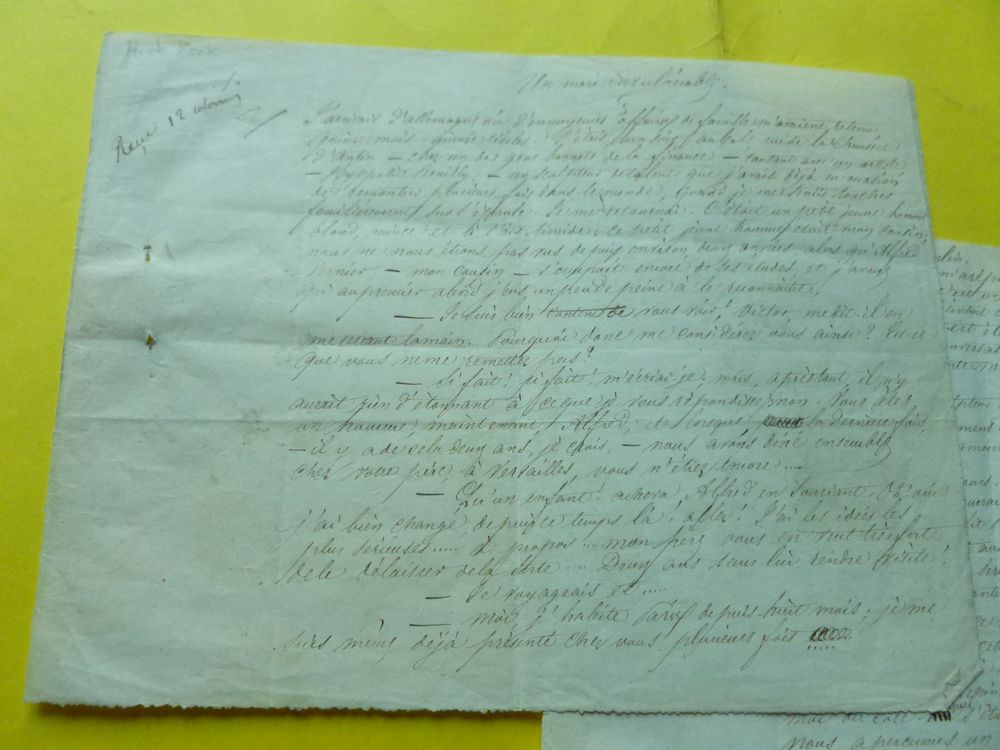 H. de Kock
Reçu 12 colonnes
Un mari
J'arrivais d'Allemagne où d'ennuyeuses affaires de famille m'avaient retenu
quinze mois. quinze siècles. J'étais, un soir, au bal, rue de la Chaussée
d'Antin — chez un des gros bonnets de la finance — causant avec un artiste
— un sculpteur de talent que j'avais déjà eu occasion
de rencontrer plusieurs fois dans le monde, quand je me sentis toucher
familièrement sur l'épaule. Je me retournai. C'était un petit jeune homme
blond, mince et à l'air timide; ce petit jeune homme était mon cousin;
nous ne nous étions pas vus depuis environ deux années alors qu'Alfred
Vernier — mon cousin — s'occupait encore de ses études, et j'avoue
qu'au premier abord j'eus un peu de peine à le reconnaître.
— Je suis bien content de vous voir, Victor, me dit-il en
me serrant la main. Pourquoi donc me considérez vous ainsi? Est-ce
que vous ne me remettez pas?
— Si fait! si fait! m'écriai-je; mais, après tout, il n'y
aurait rien d'étonnant à ce que je vous répondisse non. Vous êtes
un homme, maintenant, Alfred, et lorsque, la dernière fois,
— il y a de cela deux ans, je crois, — nous avons dîné ensemble
chez votre père, à Versailles, vous n'étiez encore....
— Qu'un enfant! acheva Alfred en souriant. Oh! oui
j'ai bien changé, depuis ce temps là! allez! J'ai les idées les
plus sérieuses..... à propos.... mon père vous en veut très fort
de le délaisser de la sorte.... Deux ans sans lui rendre visite!
— Je voyageais et.....
— Moi, j'habite Paris depuis huit mois; je me
suis même déjà présenté chez vous plusieurs fois
Nous aperçumes un